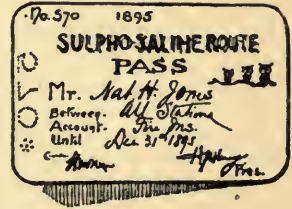 No. 570 1895
SULPHO-SALINE ROUTE
PASS
Mr. Nat H. Jones
Between All Stations
Account Fire Ins.
Until Dec 31st 1895
Pres.